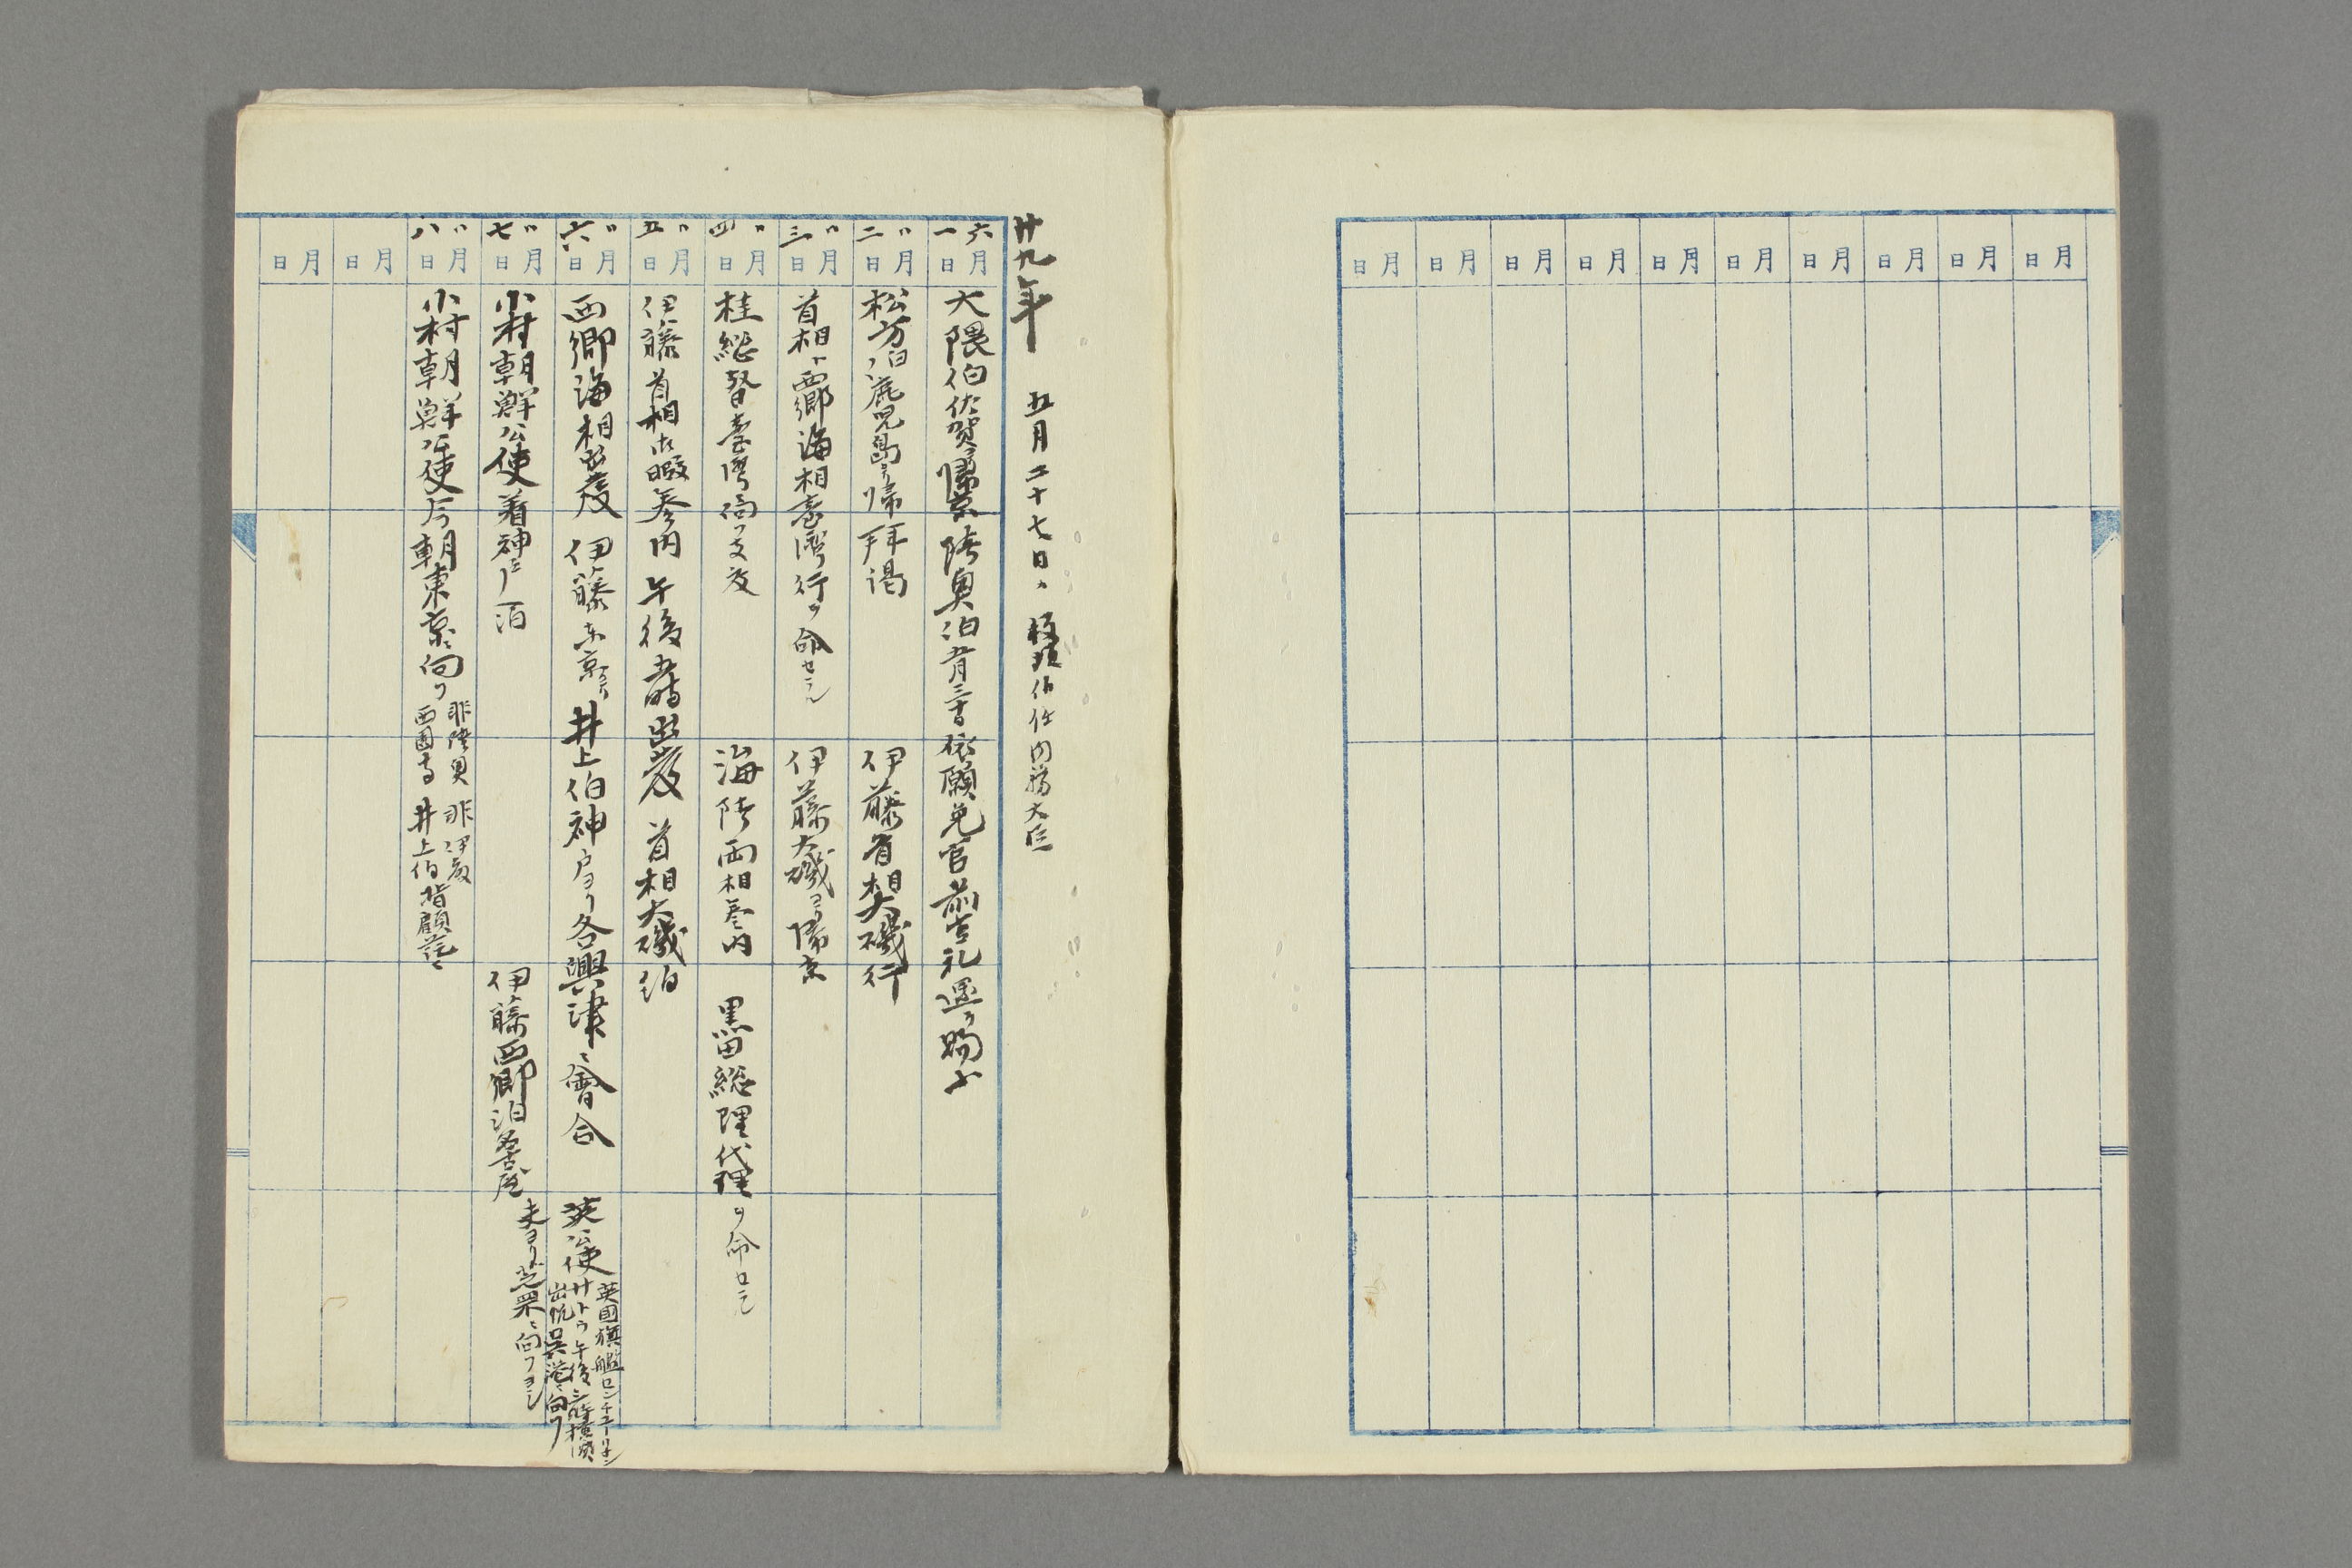 月日
月日
月日
月日
月日
月日
月日
月日
月日
月日
廿九年 五月二十七日、板垣伯任内務大臣
六月一日 大隈伯佐賀ヨリ帰京 陸奥伯五月三十日依願免官前官礼遇ヲ賜フ
〃月二日 松方伯ハ鹿児島ヨリ帰拝謁 伊藤首相大磯行
〃月三日 首相ト西郷海相臺湾行ヲ命セラル 伊藤大磯ヨリ帰京
〃月四日 桂総督臺湾向ヲ支度 海陸両相参内 黒田総理代理ヲ命セラル
〃月五日 伊藤首相御暇参内 午後五時出発 首相大磯泊
〃月六日 西郷海相出発 伊藤東京ヨリ井上伯神戸ヨリ各興津ニ會合 英公使サトウ午後三時横濱
英國旗艦センチユーリオン
出帆呉港ニ向フ
〃月七日 小村朝鮮公使着神ニノ一泊 伊藤西郷泊名古屋
夫ヨリ芝罘ニ向フヨシ
〃月八日 小村朝鮮公使今朝東京ニ向フ
非陸奥 非伊藤
西園寺 井上伯皆顧
月日
月日